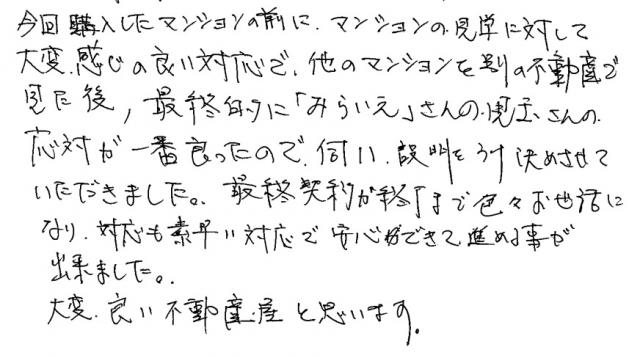 今回購入したマンションの前に、マンションの見学に対して
大変感じの良い対応で、他のマンションを別の不動産で
見た後、最終的に「みらいえ」さんの児玉さんの
応対が一番良ったので、伺い、説明をうけ決めさせて
いただきました。最終契約が終了まで色々お世話に
なり、対応も素早い対応で安心ができて進める事が
出来ました。
大変良い不動産屋と思います。